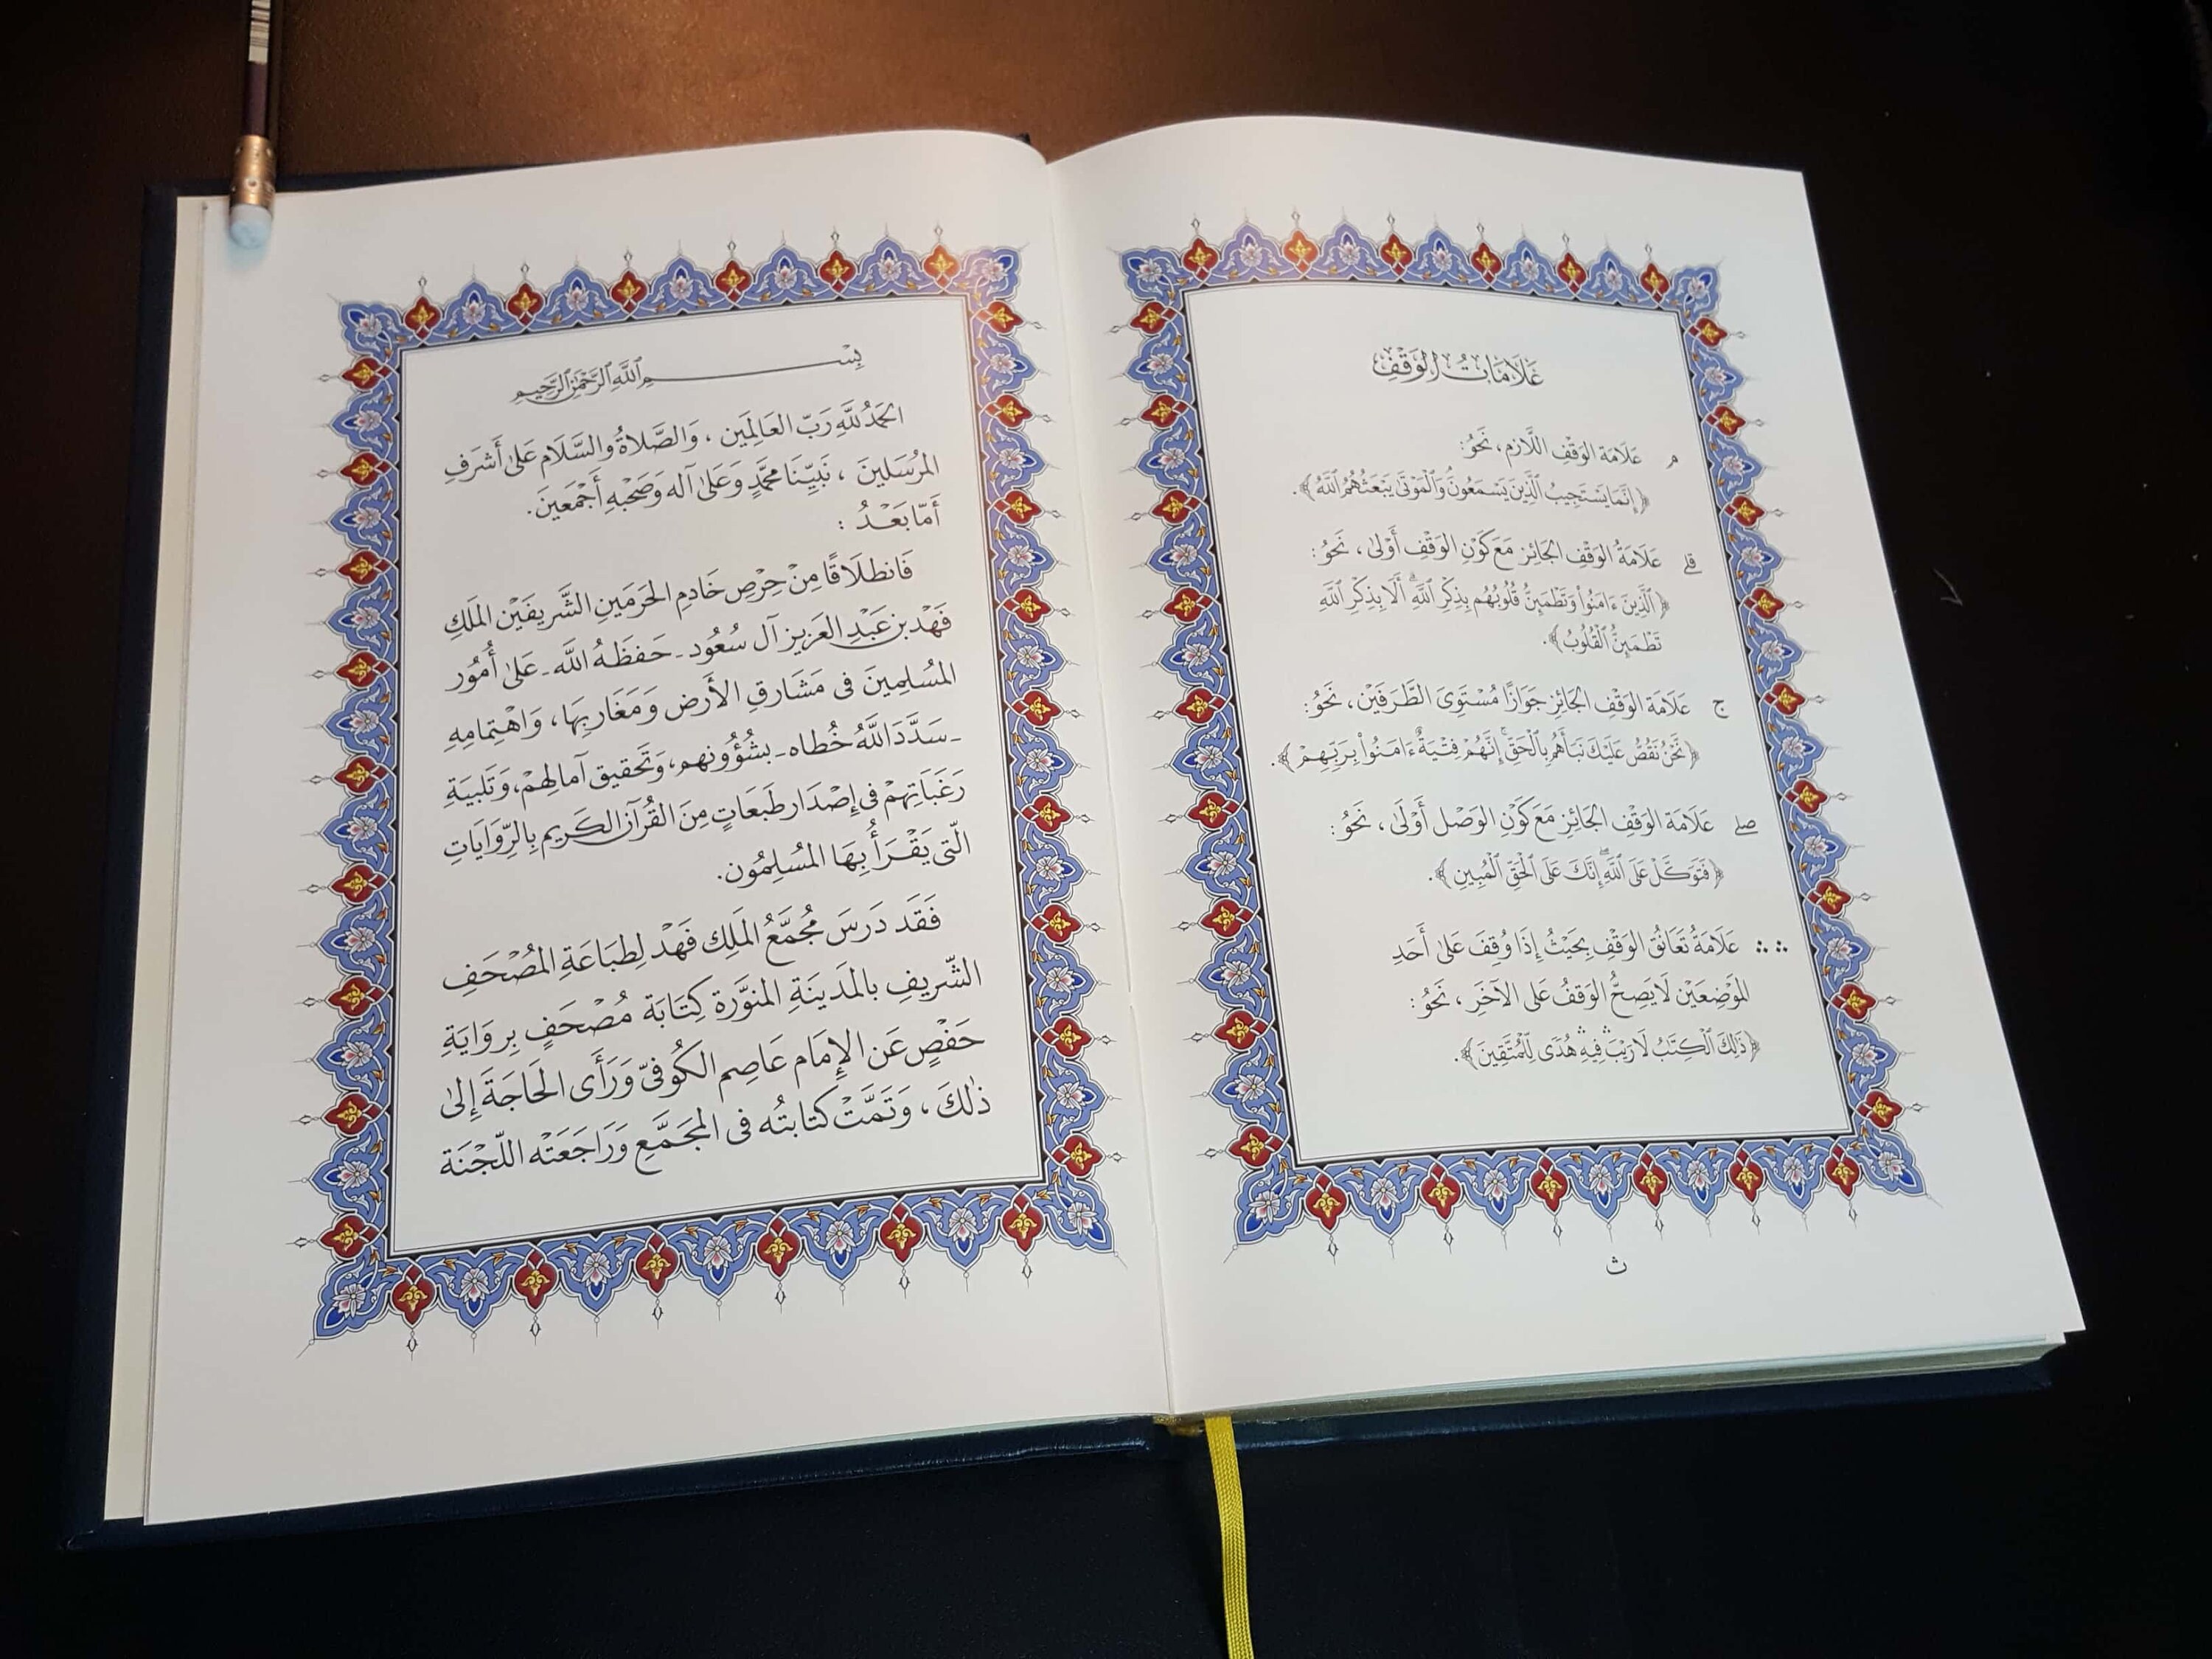 عَلَامَاتُ الوَقْفِ
م عَلَامَة الوَقْفِ اللَّازِم، نَحْوُ:
﴿إِنَّمَا يَسْتَجِيبُ ٱلَّذِينَ يَسْمَعُونَۘ وَٱلْمَوْتَىٰ يَبْعَثُهُمُ ٱللَّهُ﴾.
قلى عَلَامَةُ الوَقْفِ الجَائِز مَعَ كَوْنِ الوَقْفِ أَوْلَىٰ، نَحْوُ:
﴿ٱلَّذِينَ ءَامَنُواْ وَتَطْمَئِنُّ قُلُوبُهُم بِذِكْرِ ٱللَّهِۗ أَلَا بِذِكْرِ ٱللَّهِ
تَطْمَئِنُّ ٱلْقُلُوبُ﴾.
ج عَلَامَة الوَقْفِ الجَائِزِ جَوَازًا مُسْتَوِىَ الطَّرَفَيْنِ، نَحْوُ:
﴿نَّحْنُ نَقُصُّ عَلَيْكَ نَبَأَهُم بِٱلْحَقِّۚ إِنَّهُمْ فِتْيَةٌ ءَامَنُواْ بِرَبِّهِمْ﴾.
صلى عَلَامَة الوَقْفِ الجَائِزِ مَعَ كَوْنِ الوَصْل أَوْلَىٰ، نَحْوُ:
﴿فَتَوَكَّلْ عَلَى ٱللَّهِۖ إِنَّكَ عَلَى ٱلْحَقِّ ٱلْمُبِينِ﴾.
∴ ∴ عَلَامَةُ تَعَانُقِ الوَقْفِ بِحَيْثُ إِذَا وُقِفَ عَلىٰ أَحَدِ
المَوْضِعَيْنِ لَا يَصِحُّ الوَقفُ عَلى الآخَرِ، نَحْوُ:
﴿ذَٰلِكَ ٱلْكِتَٰبُ لَا رَيْبَۛ فِيهِۛ هُدًى لِّلْمُتَّقِينَ﴾.
ث
بِسْـــمِ ٱللَّهِ ٱلرَّحْمَٰنِ ٱلرَّحِيمِ
الحَمْدُ للَّهِ رَبّ العَالَمِين، وَالصَّلاةُ والسَّلَام عَلىٰ أَشرَفِ
المُرْسَلينَ، نَبِيِّنَا مُحمَّدٍ وَعَلىٰ آله وَصَحْبِهِ أَجْمَعِينَ.
أَمّا بَعْدُ:
فَانطلَاقًا مِنْ حِرْصِ خَادِمِ الحَرَمَينِ الشَّريفَيْن المَلَكِ
فَهْد بن عَبْدِ العَزيز آل سُعُود ـ حَفظَهُ اللَّه ـ عَلىٰ أُمُور
المُسْلِمِينَ فى مَشَارِقِ الأَرض وَمَغَاربِهَا، وَاهْتِمامِهِ
ـ سَدَّدَ اللَّهُ خُطاه ـ بشُؤُونهم، وَتَحْقيق آمالِهمْ، وَتَلبيَةِ
رَغَبَاتِهمْ فى إِصْدَار طَبَعَاتٍ مِنَ القُرآن الكَريم بِالرِّوَايَاتِ
الّتى يَقْرَأُ بِهَا المُسْلِمُون.
فَقَد دَرَسَ مُجَمَّعُ المَلِكِ فَهْد لِطِبَاعَةِ المُصْحَفِ
الشّريفِ بالمَدينَةِ المنوَّرة كِتَابَة مُصْحَفٍ برِوَايَةِ
حَفْصٍ عَن الإِمَام عَاصِم الكُوفىّ وَرَأَى الحَاجَةَ إِلىٰ
ذٰلكَ، وَتَمَّتْ كتابتُه فى المجَمَّعِ وَرَاجَعَتْه اللّجْنَة